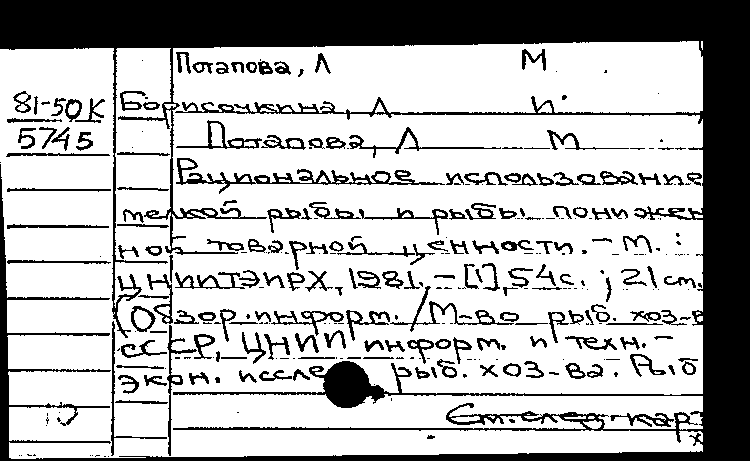 Потапова, Л М
81-50К Борисочкина, Л И.
5745 Потапова, Л М
Рациональное использование
мелкой рыбы и рыбы понижен
ной товарной ценности. - М. :
ЦНИИТЭИРХ, 1981. - [1], 54 с. ; 21 см.
(Обзор. информ. / М-во рыб. хоз-в
СССР, ЦНИИ информ. и техн. -
экон. иссле рыб. хоз-ва. Рыб
См. след. кар